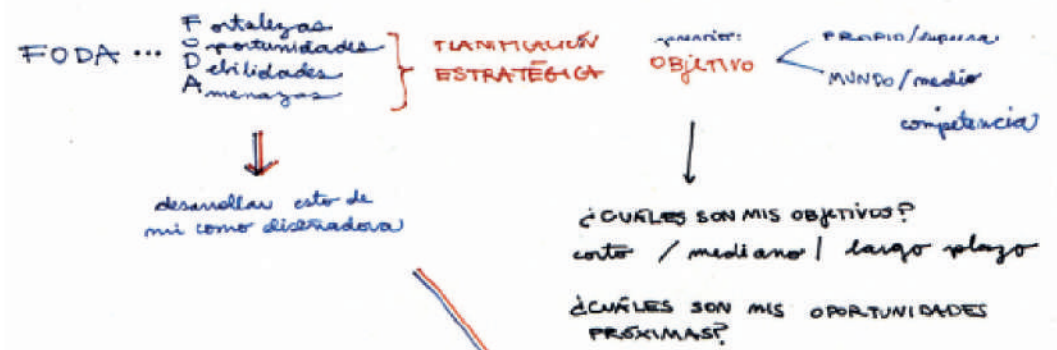 FODA ...
Fortalezas
Oportunidades
Debilidades
Amenazas
PLANIFICACIÓN
ESTRATÉGICA
OBJETIVO
PROPIO/
MUNDO/medio
competencia
desarrollar esto de
mi como diseñadora
¿CUÁLES SON MIS OBJETIVOS?
corto / mediano / largo plazo
¿CUÁLES SON MIS OPORTUNIDADES
PRÓXIMAS?